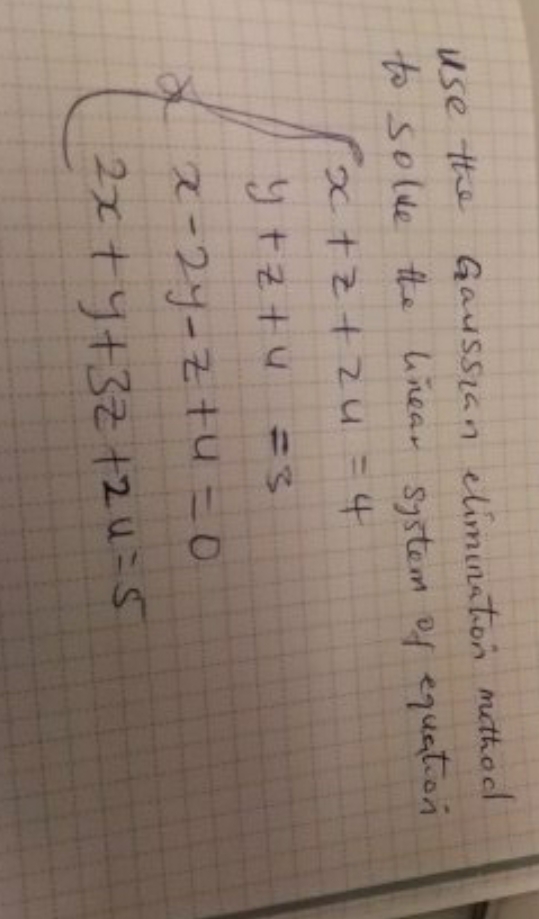 Use the Gaussian elimination method
to solve the linear system of equation
x + z + 2u = 4
y + z + u = 3
x - 2y - z + u = 0
2x + y + 3z + 2u = 5